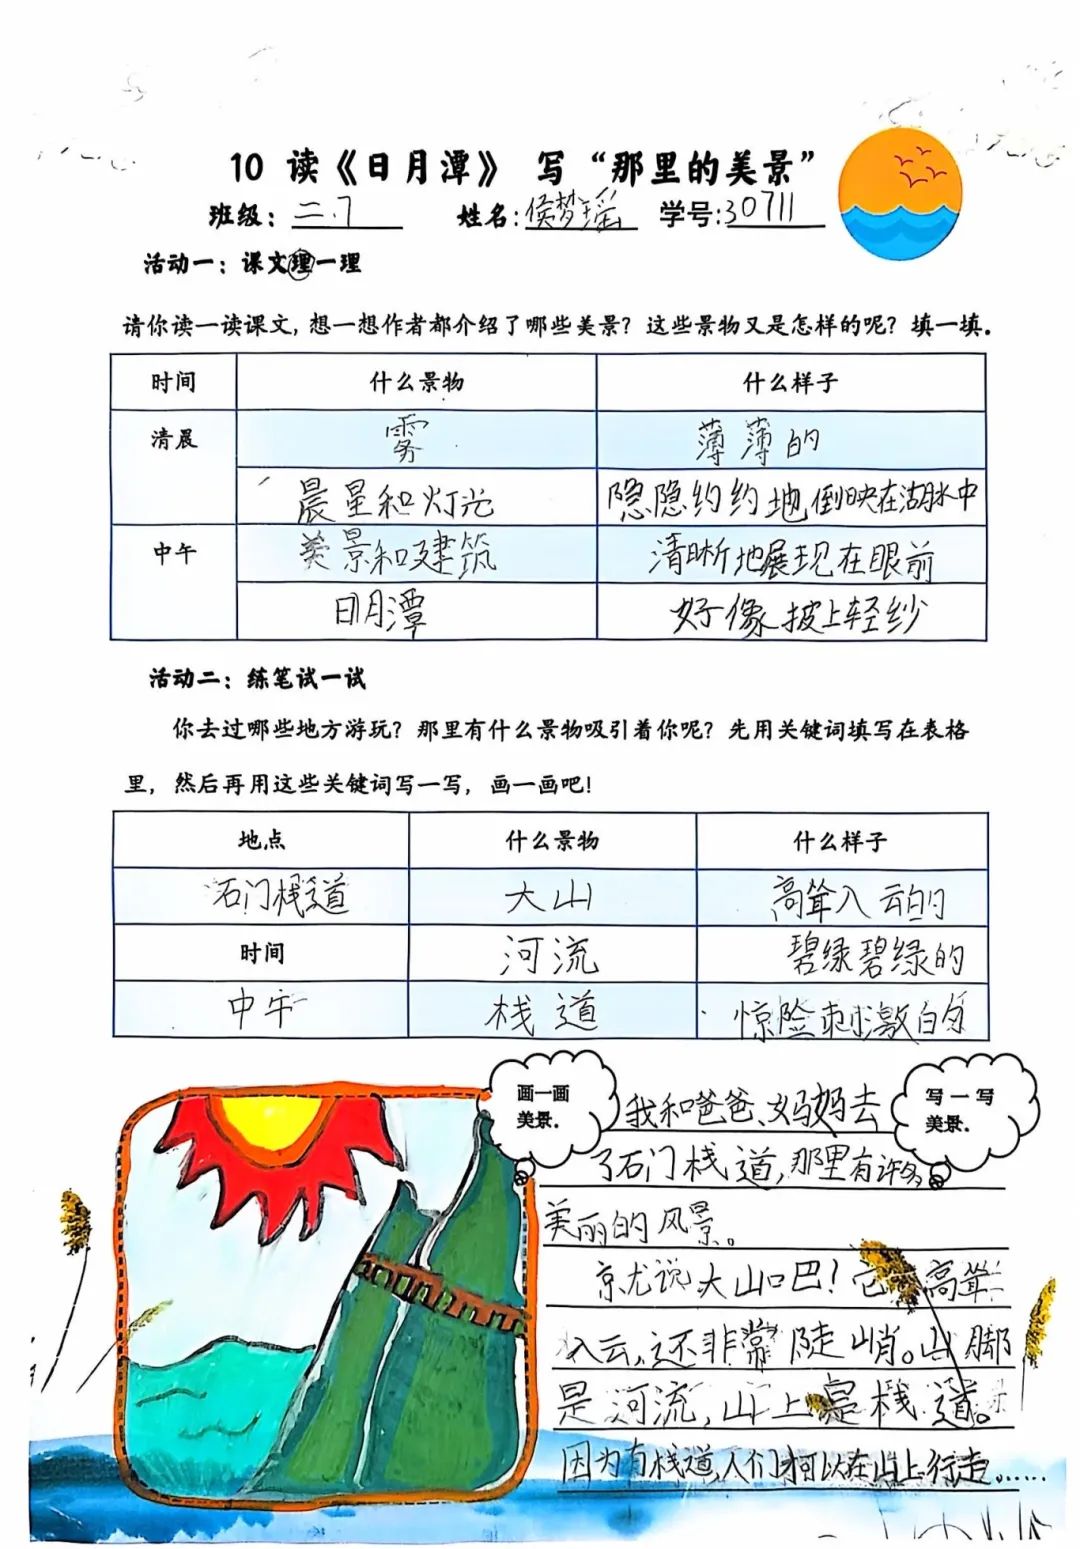 10 读《日月潭》 写“那里的美景”
班级：二.7 姓名：侯梦瑶 学号:30711
活动一：课文理一理
请你读一读课文，想一想作者都介绍了哪些美景？这些景物又是怎样的呢？填一填。
时间 什么景物 什么样子
清晨 雾 薄薄的
晨星和灯光 隐隐约约地倒映在湖水中
中午 美景和建筑 清晰地展现在眼前
日月潭 好像披上轻纱
活动二：练笔试一试
你去过哪些地方游玩？那里有什么景物吸引着你呢？先用关键词填写在表格
里，然后再用这些关键词写一写，画一画吧！
地点 什么景物 什么样子
石门栈道 大山 高耸入云的
时间 河流 碧绿碧绿的
中午 栈道 惊险刺激的
画一画
美景.
写一写
美景.
我和爸爸、妈妈去
了石门栈道，那里有许多
美丽的风景。
就说大山吧！它高耸
入云，还非常陡峭。山脚
是河流，山上是栈道。
因为有栈道，人们才可以在山上行走。……